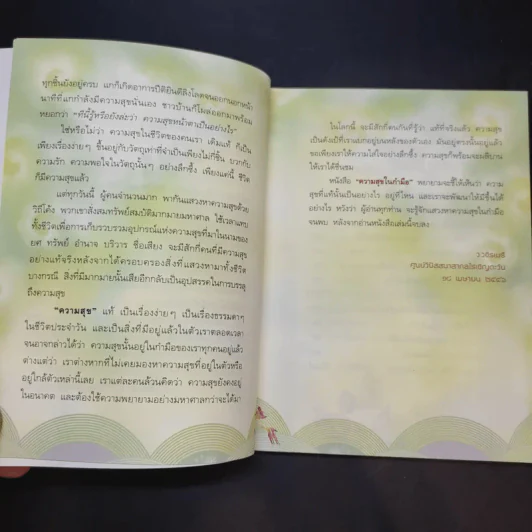 ทุกชิ้นยังอยู่ครบ แกก็เกิดอาการปีติยินดีลิงโลดจนออกนอกหน้า
นาทีที่แกกำลังมีความสุขนั่นเอง ชาวบ้านก็โผล่ออกมาพร้อม
หยอกว่า "ทีนี้รู้หรือยังล่ะว่า ความสุขหน้าตาเป็นอย่างไร"
ใช่หรือไม่ว่า ความสุขในชีวิตของคนเรา เดิมแท้ ก็เป็น
เพียงเรื่องง่ายๆ ขึ้นอยู่กับวัตถุเท่าที่จำเป็นเพียงไม่กี่ชิ้น บวกกับ
ความรัก ความพอใจในวัตถุนั้นๆ อย่างลึกซึ้ง เพียงแค่นี้ ชีวิต
ก็มีความสุขแล้ว
แต่ทุกวันนี้ ผู้คนจำนวนมาก พากันแสวงหาความสุขด้วย
วิถีโค้ง พวกเขาสั่งสมทรัพย์สมบัติมากมายมหาศาล ใช้เวลาแทบ
ทั้งชีวิตเพื่อการเก็บรวบรวมอุปกรณ์แห่งความสุขที่มาในนามของ
ยศ ทรัพย์ อำนาจ บริวาร ชื่อเสียง จะมีสักกี่คนที่มีความสุข
อย่างแท้จริงหลังจากได้ครอบครองสิ่งที่แสวงหามาทั้งชีวิต
บางกรณี สิ่งที่มีมากมายนั้นเสียอีกกลับเป็นอุปสรรคในการบรรลุ
ถึงความสุข
"ความสุข" แท้ เป็นเรื่องง่ายๆ เป็นเรื่องธรรมดาๆ
ในชีวิตประจำวัน และเป็นสิ่งที่มีอยู่แล้วในตัวเราตลอดเวลา
จนอาจกล่าวได้ว่า ความสุขนั้นอยู่ในกำมือของเราทุกคนอยู่แล้ว
ต่างแต่ว่า เราต่างหากที่ไม่เคยมองหาความสุขที่อยู่ในตัวหรือ
อยู่ใกล้ตัวเหล่านี้เลย เราแต่ละคนล้วนคิดว่า ความสุขยังคงอยู่
ในอนาคต และต้องใช้ความพยายามอย่างมหาศาลกว่าจะได้มา
ในโลกนี้ จะมีสักกี่คนกันที่รู้ว่า แท้ที่จริงแล้ว ความสุข
เป็นดังเป้ที่เราแบกอยู่บนหลังของตัวเอง มันอยู่ตรงนั้นอยู่แล้ว
ขอเพียงเราให้ความใส่ใจอย่างลึกซึ้ง ความสุขก็พร้อมจะผลิบาน
ให้เราได้ชื่นชม
หนังสือ "ความสุขในกำมือ" พยายามจะชี้ให้เห็นว่า ความ
สุขที่แท้นั้นเป็นอย่างไร อยู่ที่ไหน และเราจะพัฒนาให้มีขึ้นได้
อย่างไร หวังว่า ผู้อ่านทุกท่าน จะรู้จักแสวงหาความสุขในกำมือ
จนพบ หลังจากอ่านหนังสือเล่มนี้จบลง
ว.วชิรเมธี